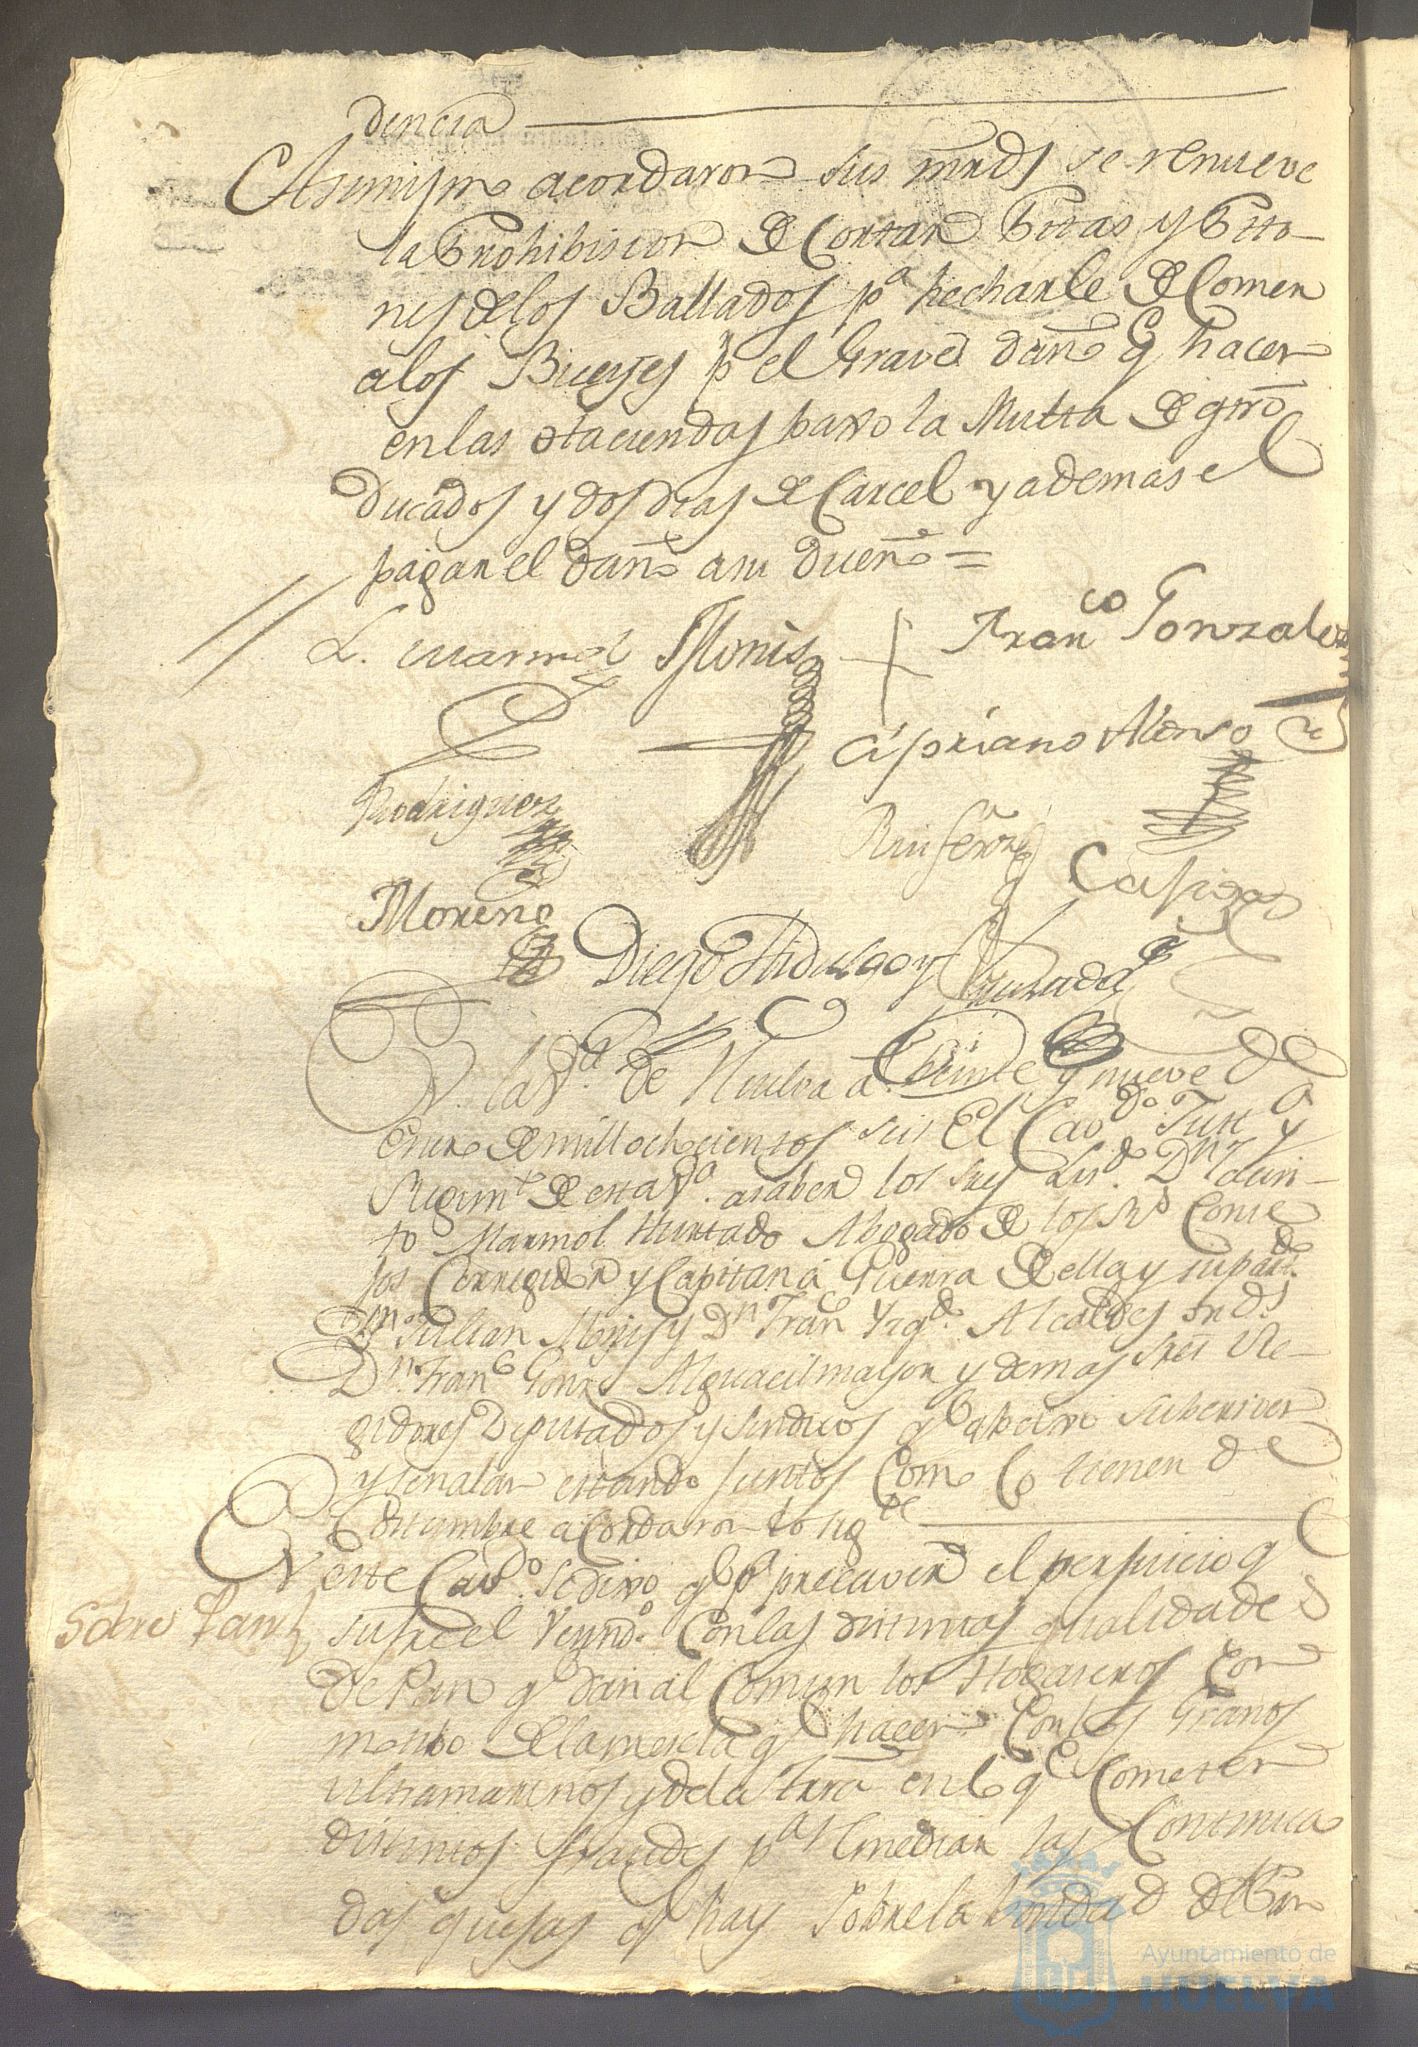 dencia
Asimismo acordaron sus mrds se renueve
la Prohibision de Cortar Pitas y Pito-
nes de los Ballados pa hecharle de Comer
a los Bueyes p el Grave daño q hacen
en las Haciendas baxo la Multa de qtro
Ducados y dos dias de Carcel y ademas el
pagar el daño a su dueño =
L. Marmol Monis + Franco Gonzales
Cipriano Alonso
Rodriguez
Ruifernz
Moreno
Diego Hidalgo y Quesada
En la Va de Huelva a Veinte y nueve de
Enero de mil ochocientos seis El Cavdo Justa y
Regimto de esta Va. a saber los Sres Lisdo. Dn Jacin-
to Marmol Hurtado Abogado de los Rs Conse
jos Corregidor y Capitan a Guerra de ella y su partdo
Dn Julian Monis y Dn Franco Yzqdo. Alcaldes Ords
Dn. Franco Gonzs Alguacil mayor y demas Sres Re-
gidores Diputados y Sindicos q abaxo subscriven
y señalan estando Juntos Como lo tienen de
Costumbre acordaron lo sigte
En este Cavdo. se dixo q pa precaver el perjuicio q
Sobre Pan
sufre el Vecindo. Con las distintas qualidades
de Pan q dan al Comun los Hogaseros con
motibo de la mescla q hacen Con los Granos
ultramarinos y de la Tierra en lo qe Cometen
distintos fraudes pa Remediar las Continua
das quejas q hay sobre la bondad del Pan
Ayuntamiento de
HUELVA